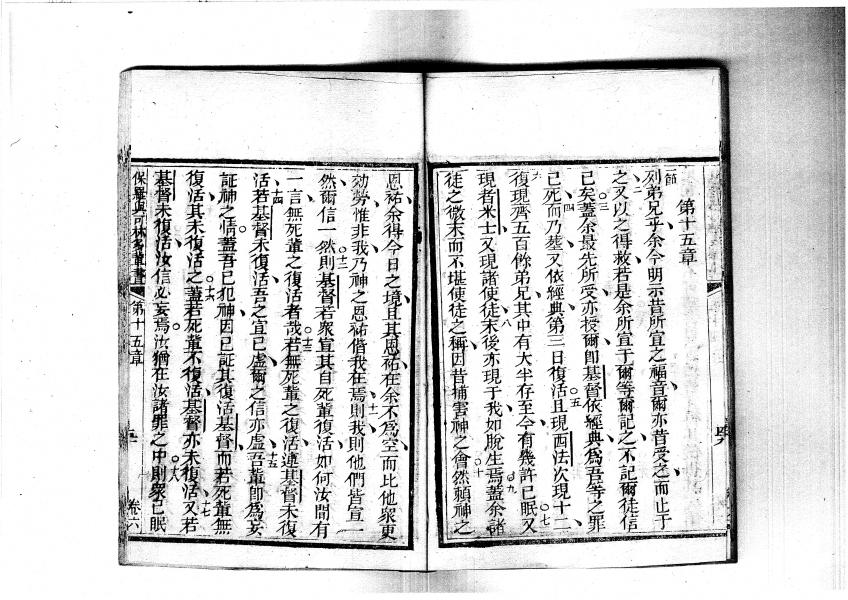 第十五章
節一列弟兄乎余今明示昔所宣之福音爾亦昔受之而止于
二之又以之得救若是余所宣于爾等爾記之不記爾徒信
三已矣蓋余最先所受亦授爾即基督依經典爲吾等之罪
四已死而乃葬又依經典第三日復活五且現西法次現十二
六復現齊五百餘弟兄其中有大半存至今有幾許已眠七又
現者米士又現諸使徒八末後亦現于我如脫生焉九蓋余諸
徒之微末而不堪使徒之稱因昔捕害神之會十然賴神之
恩祐余得今日之境且其恩祐在余不爲空而比他衆更
効勞惟非我乃神之恩祐偕我在焉十一則我則他們皆宣一
然爾信一十二然則基督若衆宣其自死輩復活如何汝間有
一言無死輩之復活者哉十三若無死輩之復活連基督未復
活十四若基督未復活吾之宣已虛爾之信亦虛十五吾輩即爲妄
証神之情蓋吾已犯神因已証其復活基督而若死輩無
復活其未復活之十六蓋若死輩不復活基督亦未復活十七又若
基督未復活汝信必妄焉汝猶在汝諸罪之中十八則衆已眠
保羅與可林多輩書 第十五章 卷六